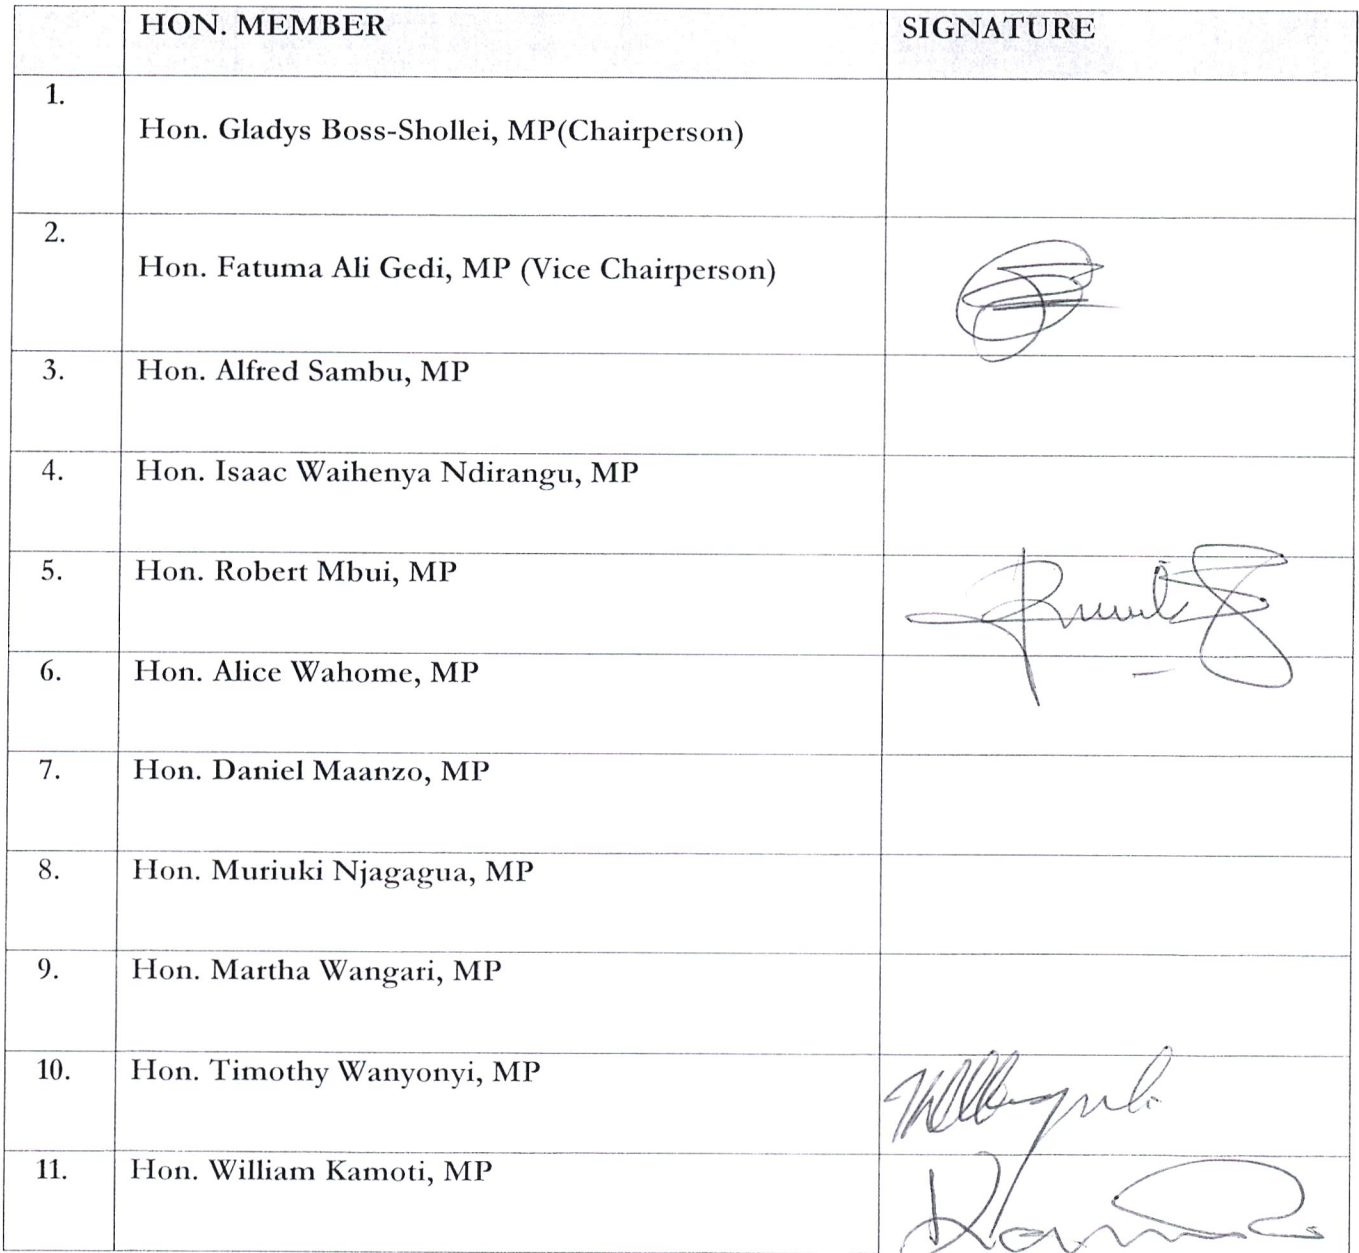 HON. MEMBER SIGNATURE
1.
Hon. Gladys Boss-Shollei, MP(Chairperson)
2.
Hon. Fatuma Ali Gedi, MP (Vice Chairperson)
3. Hon. Alfred Sambu, MP
4. Hon. Isaac Waihenya Ndirangu, MP
5. Hon. Robert Mbui, MP
6. Hon. Alice Wahome, MP
7. Hon. Daniel Maanzo, MP
8. Hon. Muriuki Njagagua, MP
9. Hon. Martha Wangari, MP
10. Hon. Timothy Wanyonyi, MP
11. Hon. William Kamoti, MP